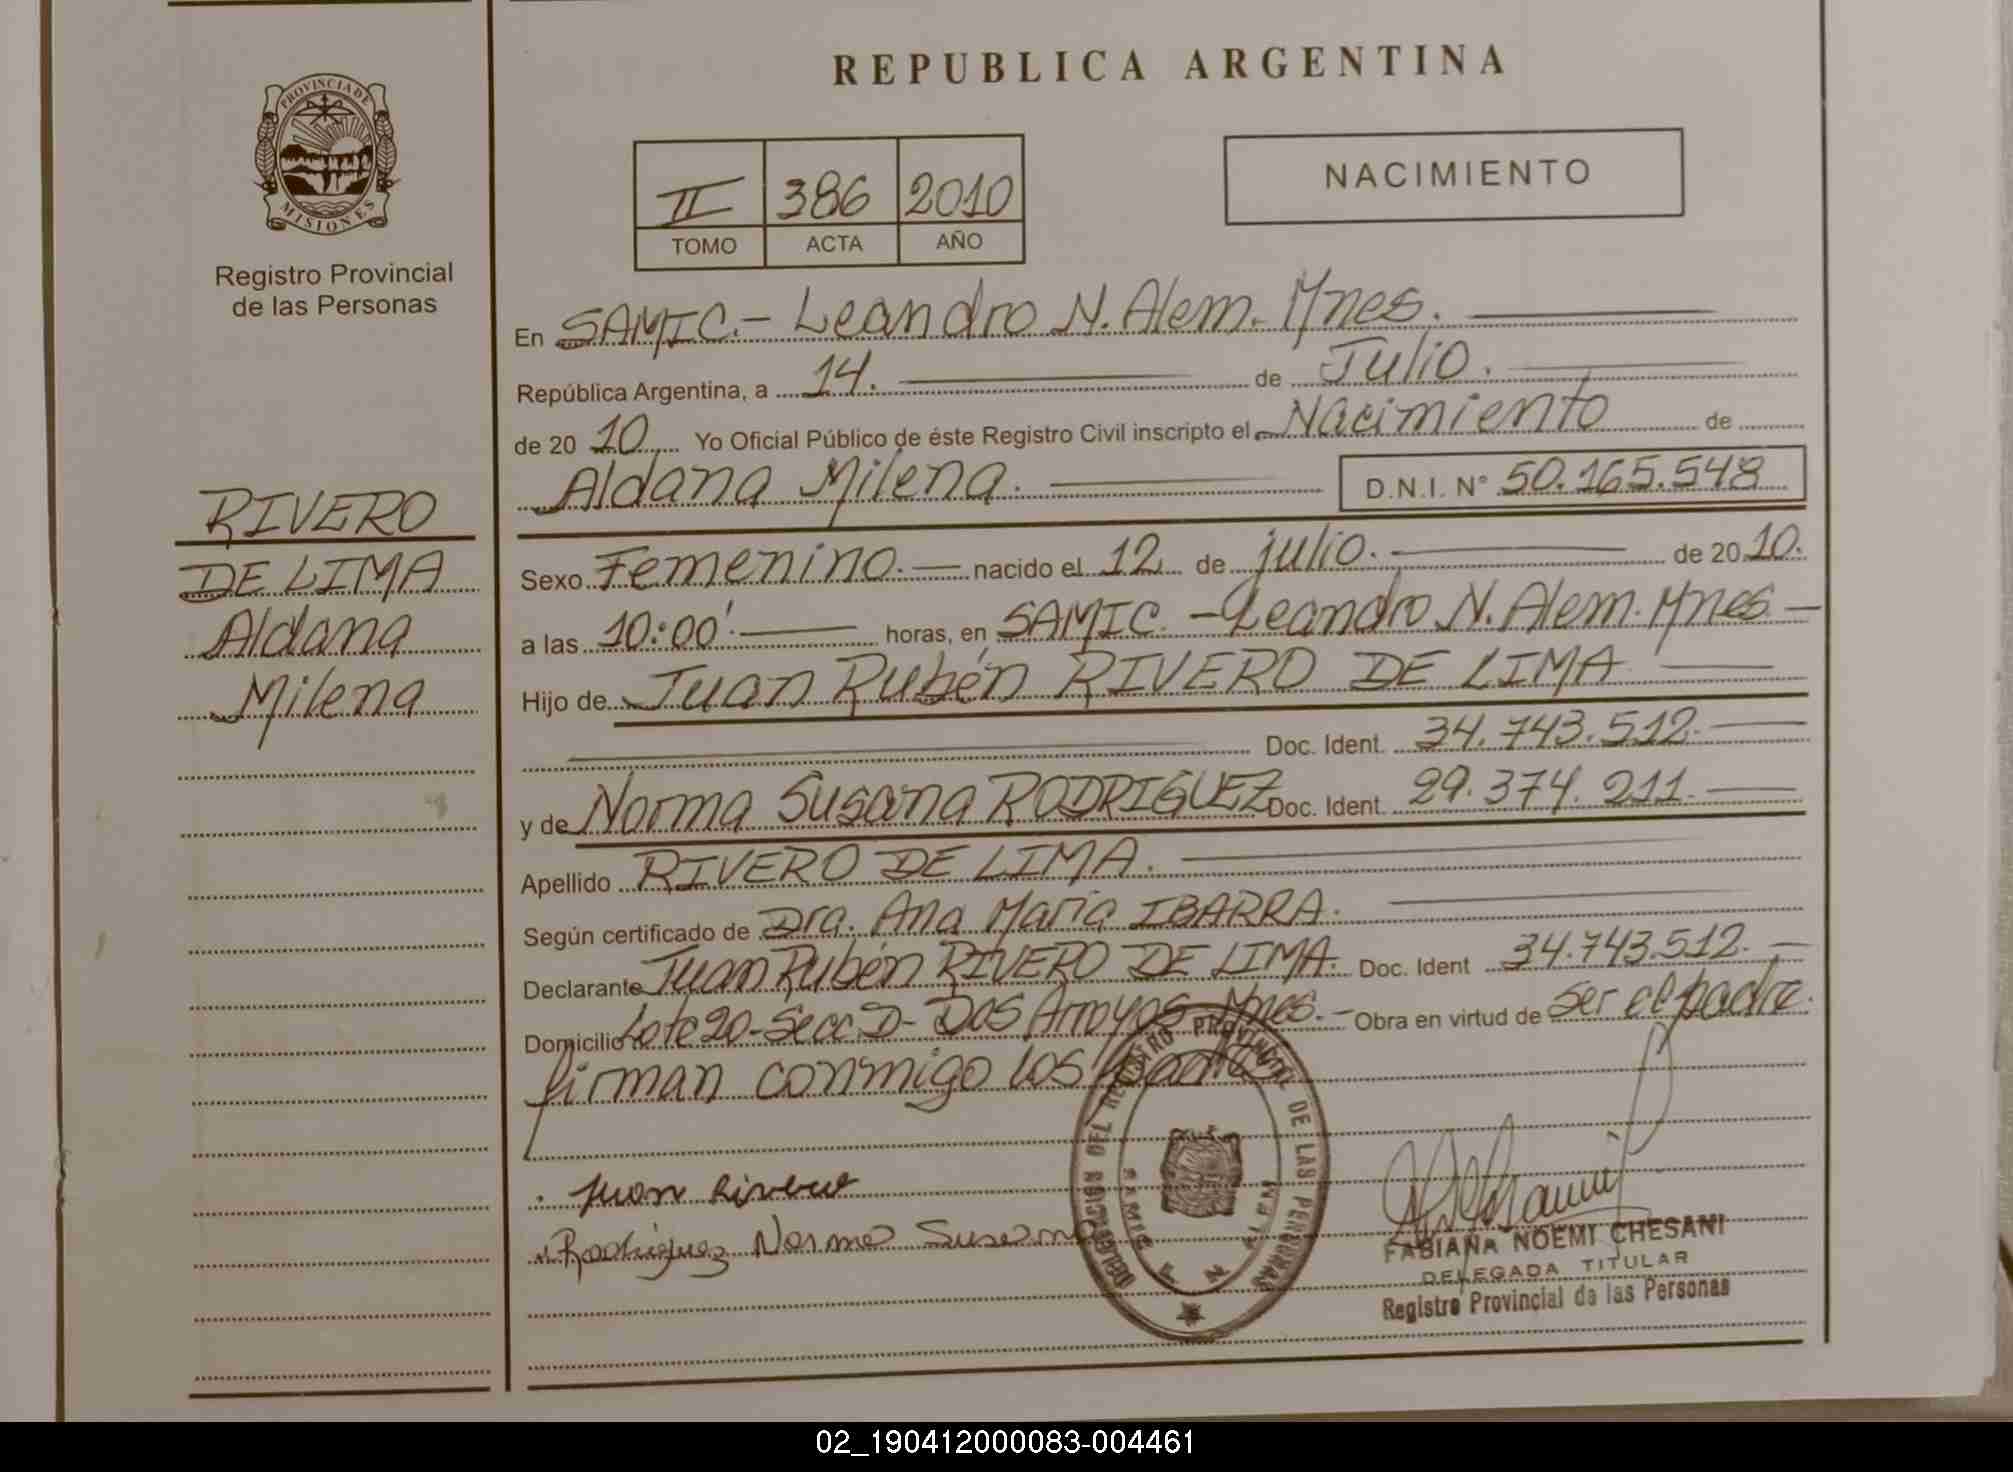 REPUBLICA ARGENTINA
PROVINCIA DE
MISIONES
Registro Provincial
de las Personas
RIVERO
DE LIMA
Aldana
Milena
II 386 2010
TOMO ACTA AÑO
NACIMIENTO
En SAMIC.- Leandro N. Alem. Mnes.
República Argentina, a 14. de Julio.
de 20 10 Yo Oficial Público de éste Registro Civil inscripto el Nacimiento de
Aldana Milena. D.N.I. N° 50.165.548
Sexo Femenino. nacido el 12 de julio. de 20 10.
a las 10:00' horas, en SAMIC. - Leandro N. Alem. Mnes -
Hijo de Juan Rubén RIVERO DE LIMA
Doc. Ident. 34.743.512.
y de Norma Susana RODRIGUEZ Doc. Ident. 29.374.211.
Apellido RIVERO DE LIMA.
Según certificado de Dra. Ana María IBARRA.
Declarante Juan Rubén RIVERO DE LIMA. Doc. Ident 34.743.512. -
Domicilio Lote 20-Secc D- Dos Arroyos Mnes. - Obra en virtud de ser el padre.
firman conmigo los padres
Juan Rivero
Rodriguez Norma Susana
DELEGACION DEL REGISTRO PROVINCIAL DE LAS PERSONAS
SAMIC L N ALEM
FABIANA NOEMI CHESANI
DELEGADA TITULAR
Registro Provincial de las Personas
02_190412000083-004461